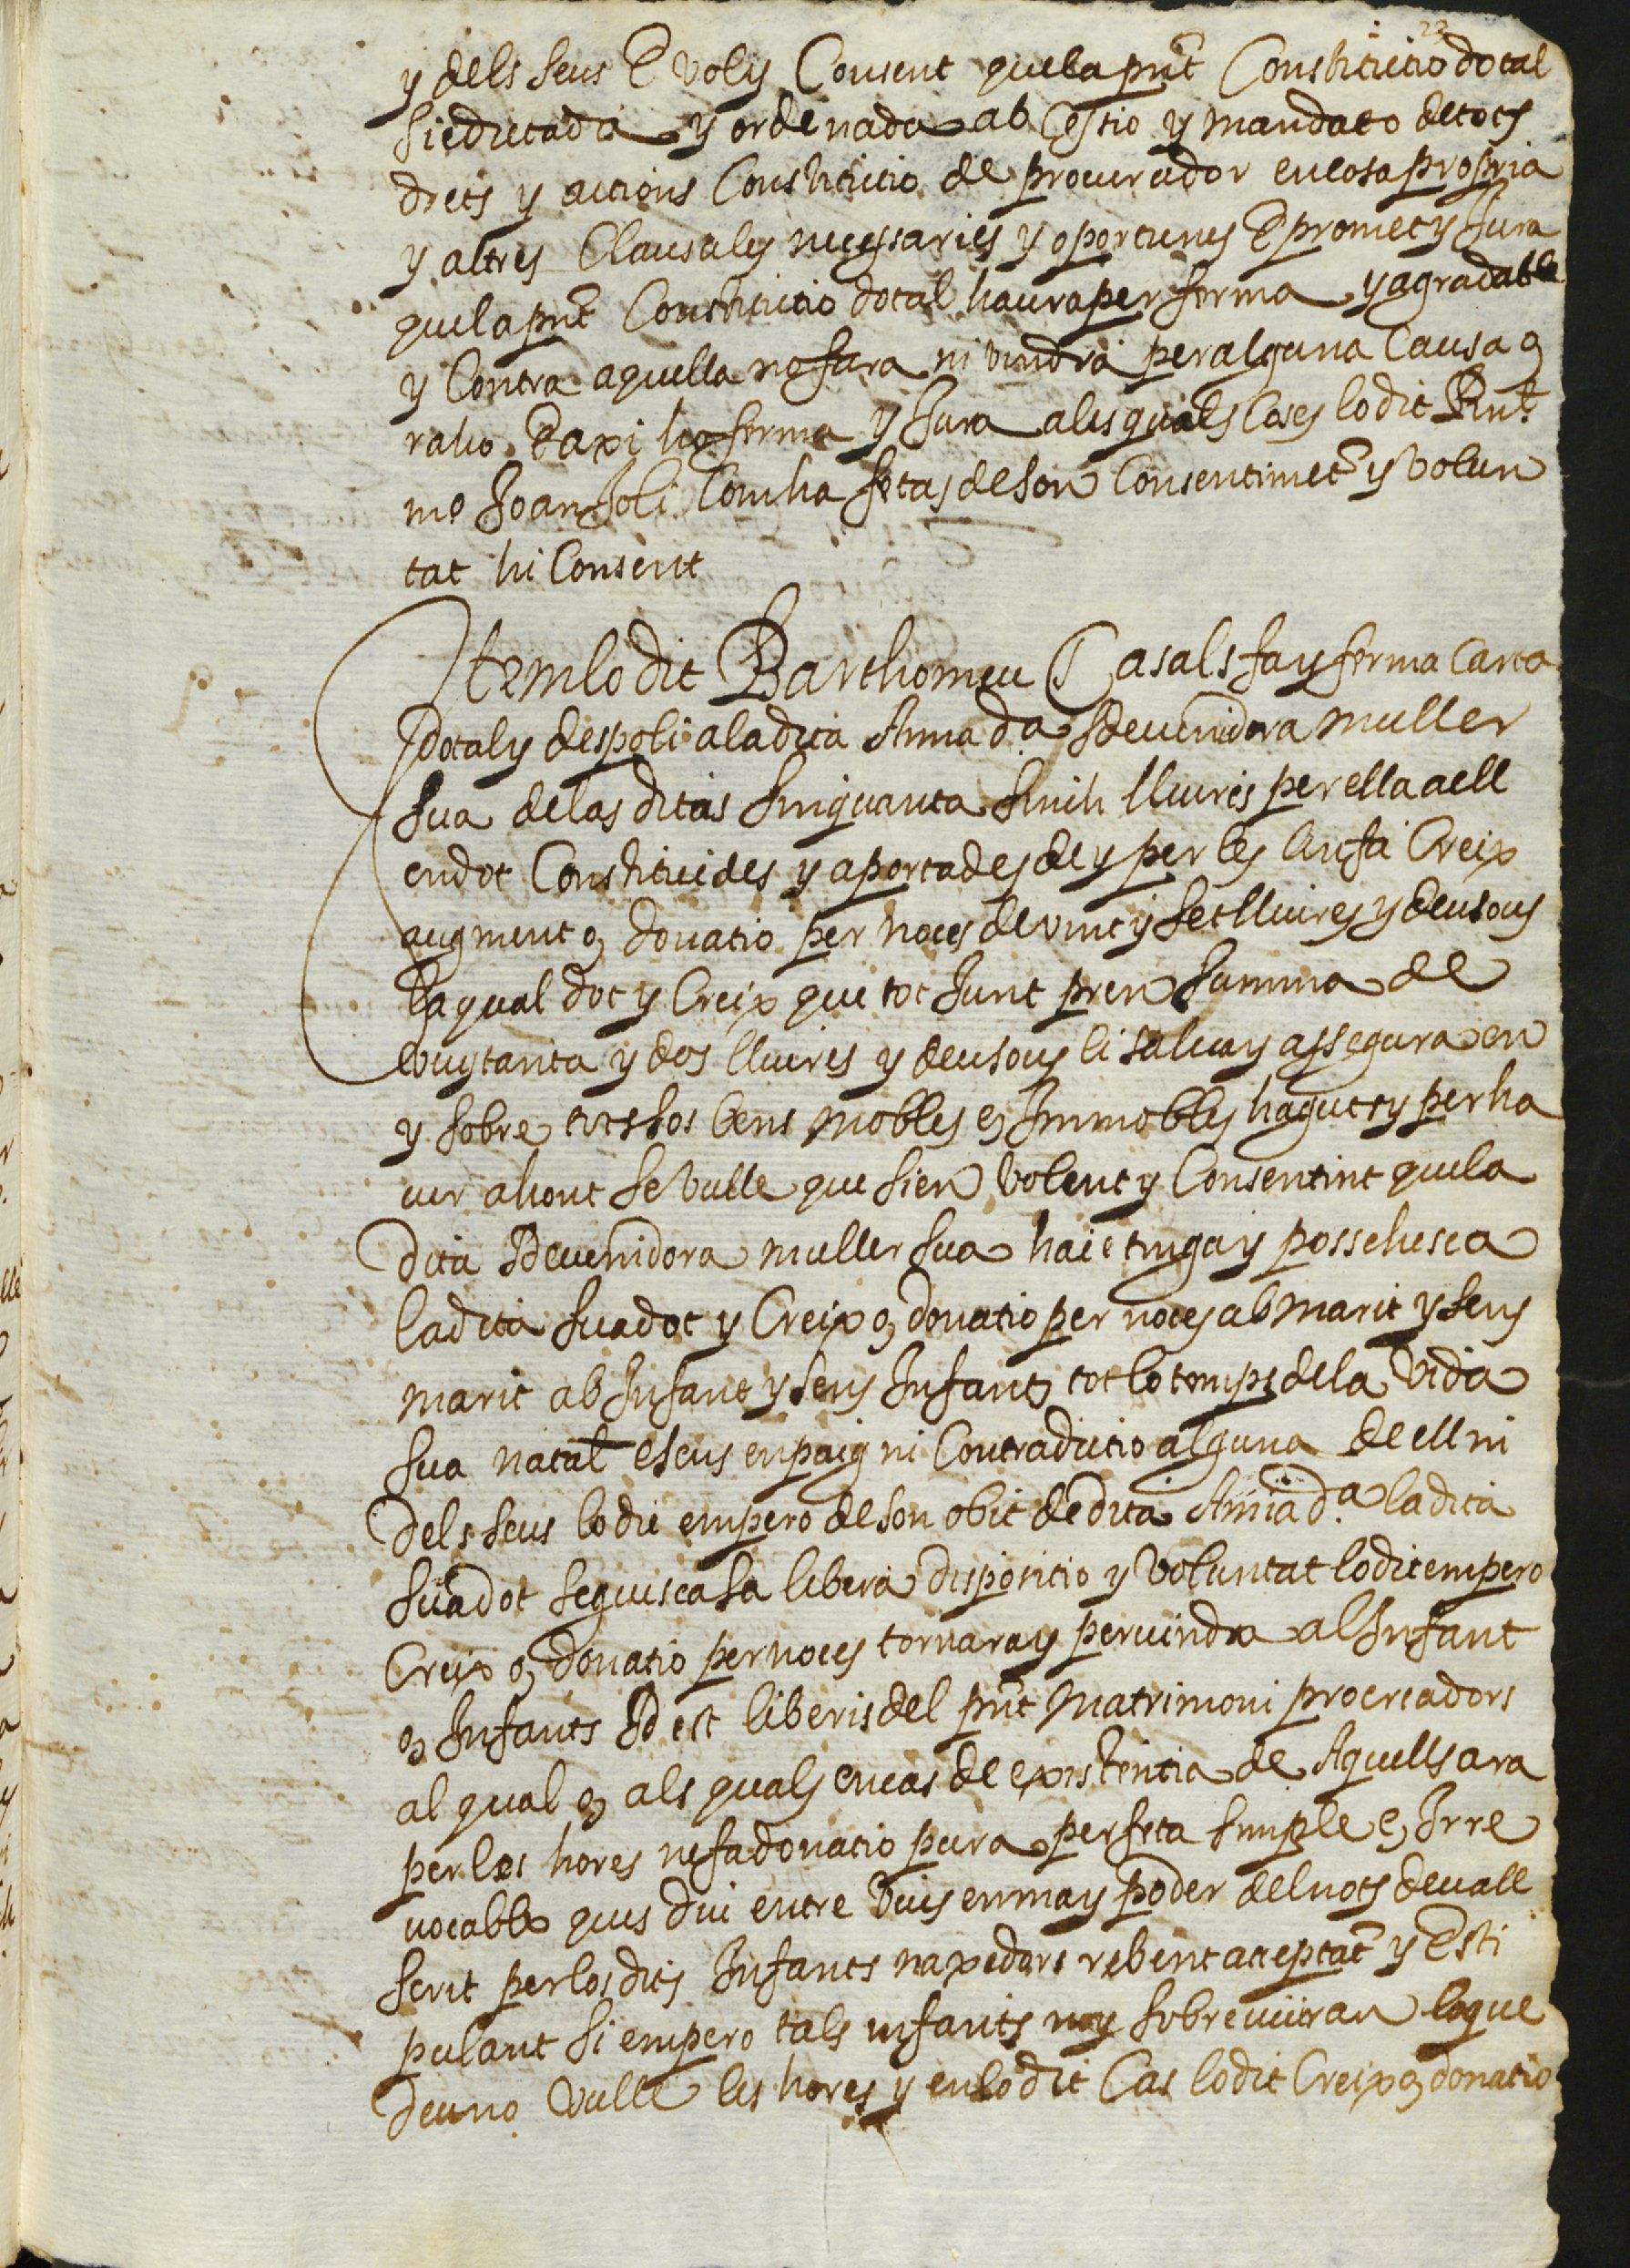 23
y dels seus E vol y Consent que la pnt Constitutio dotal
sie dictada y ordenada ab Cessio y mandato de tots
drets y actions Constitutio de procurador en cosa propria
y altres Clausules necessaries y oportunes E promet y Jura
que la pnt Constitutio dotal haura per ferma y agradable
y Contra aquella no fara ni vindra per alguna Causa o
raho E axi ho ferma y Jura a les quals Coses lo dit
mº Joan Soli Com ha fetas de son Consentimet y Volun
tat hi Consent
Item lo dit Barthomeu Casals fa y ferma Carta
dotal y despoli a la dita Anna d.ª sdevenidora muller
sua de las ditas sinquanta sinch lliures per ella a ell
en dot Constituides y aportades de y per les li fa Creix
augment o donatio per noces de vint y set lliures y deu sous
La qual dot y Creix que tot Junt pren summa de
vuytanta y dos lliures y deu sous li salva y assegura en
y sobre tots sos bens mobles e Immobles haguts y per ha
ver ahont se vulle que sien Volent y Consentint que la
dita sdevenidora muller sua haie tinga y possehesca
la dita sua dot y Creix o donatio per noces ab marit y sens
marit ab Infant y sens Infants tot lo temps de la Vida
sua natal e sens enpaig ni Contradictio alguna de ell ni
dels seus lo die empero de son obit de dita Anna d.ª la dita
sua dot seguisca sa libera dispositio y Voluntat lo dit empero
Creix o donatio per noces tornara y pervindra al Infant
o Infants Id est liberis del pnt Matrimoni procreadors
al qual o als quals en cas de existentia de Aquells ara
per les hores ne fa donatio pura perfeta simple e Irre
vocable ques diu entre vius en ma y poder del nots devall
scrit per los dits Infants naxedors rebent acceptat y Esti
pulant si empero tals infants noy sobreviuran lo que
deu no Vulle les hores y en lo dit Cas lo dit Creix o donatio